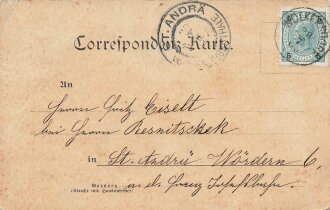 ST. ANDRÄ
Correspondenz-Karte.
An
Herrn Fritz Eiselt
bei Herrn Resnitschek
in St. Andrä Wördern 6,
Wohnung
(Strasse und Hausnummer)
a. d. Franz Josefsbahn.